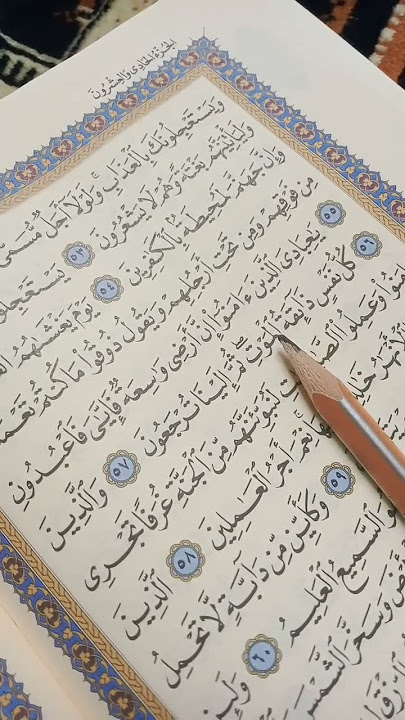 الجُزْءُ الحَادِى وَالعِشْرُونَ
وَيَسْتَعْجِلُونَكَ بِٱلْعَذَابِ وَلَوْلَآ أَجَلٌ مُّسَمًّى
وَلَيَأْتِيَنَّهُم بَغْتَةً وَهُمْ لَا يَشْعُرُونَ ٥٣ يَسْتَعْجِلُو
وَإِنَّ جَهَنَّمَ لَمُحِيطَةٌۢ بِٱلْكَـٰفِرِينَ ٥٤ يَوْمَ يَغْشَىٰهُمُ
مِن فَوْقِهِمْ وَمِن تَحْتِ أَرْجُلِهِمْ وَيَقُولُ ذُوقُوا۟ مَا كُنتُمْ تَعْمَ
٥٥ يَـٰعِبَادِىَ ٱلَّذِينَ ءَامَنُوٓا۟ إِنَّ أَرْضِى وَٰسِعَةٌ فَإِيَّـٰىَ فَٱعْبُدُونِ
٥٦ كُلُّ نَفْسٍ ذَآئِقَةُ ٱلْمَوْتِ ثُمَّ إِلَيْنَا تُرْجَعُونَ ٥٧ وَٱلَّذِينَ
ءَامَنُوا۟ وَعَمِلُوا۟ ٱلصَّـ ت لَنُبَوِّئَنَّهُم مِّنَ ٱلْجَنَّةِ غُرَفًا تَجْرِى
ٱلْأَنْهَـٰرُ خَـٰلِدِ فِيهَا نِعْمَ أَجْرُ ٱلْعَـٰمِلِينَ ٥٨ ٱلَّذِينَ
٥٩ وَكَأَيِّن مِّن دَآبَّةٍ لَّا تَحْمِلُ
هُوَ ٱلسَّمِيعُ ٱلْعَلِيمُ ٦٠ وَلَئِن
أَرْضَ وَسَخَّرَ ٱلشَّمْسَ
ٱلرِّزْقَ